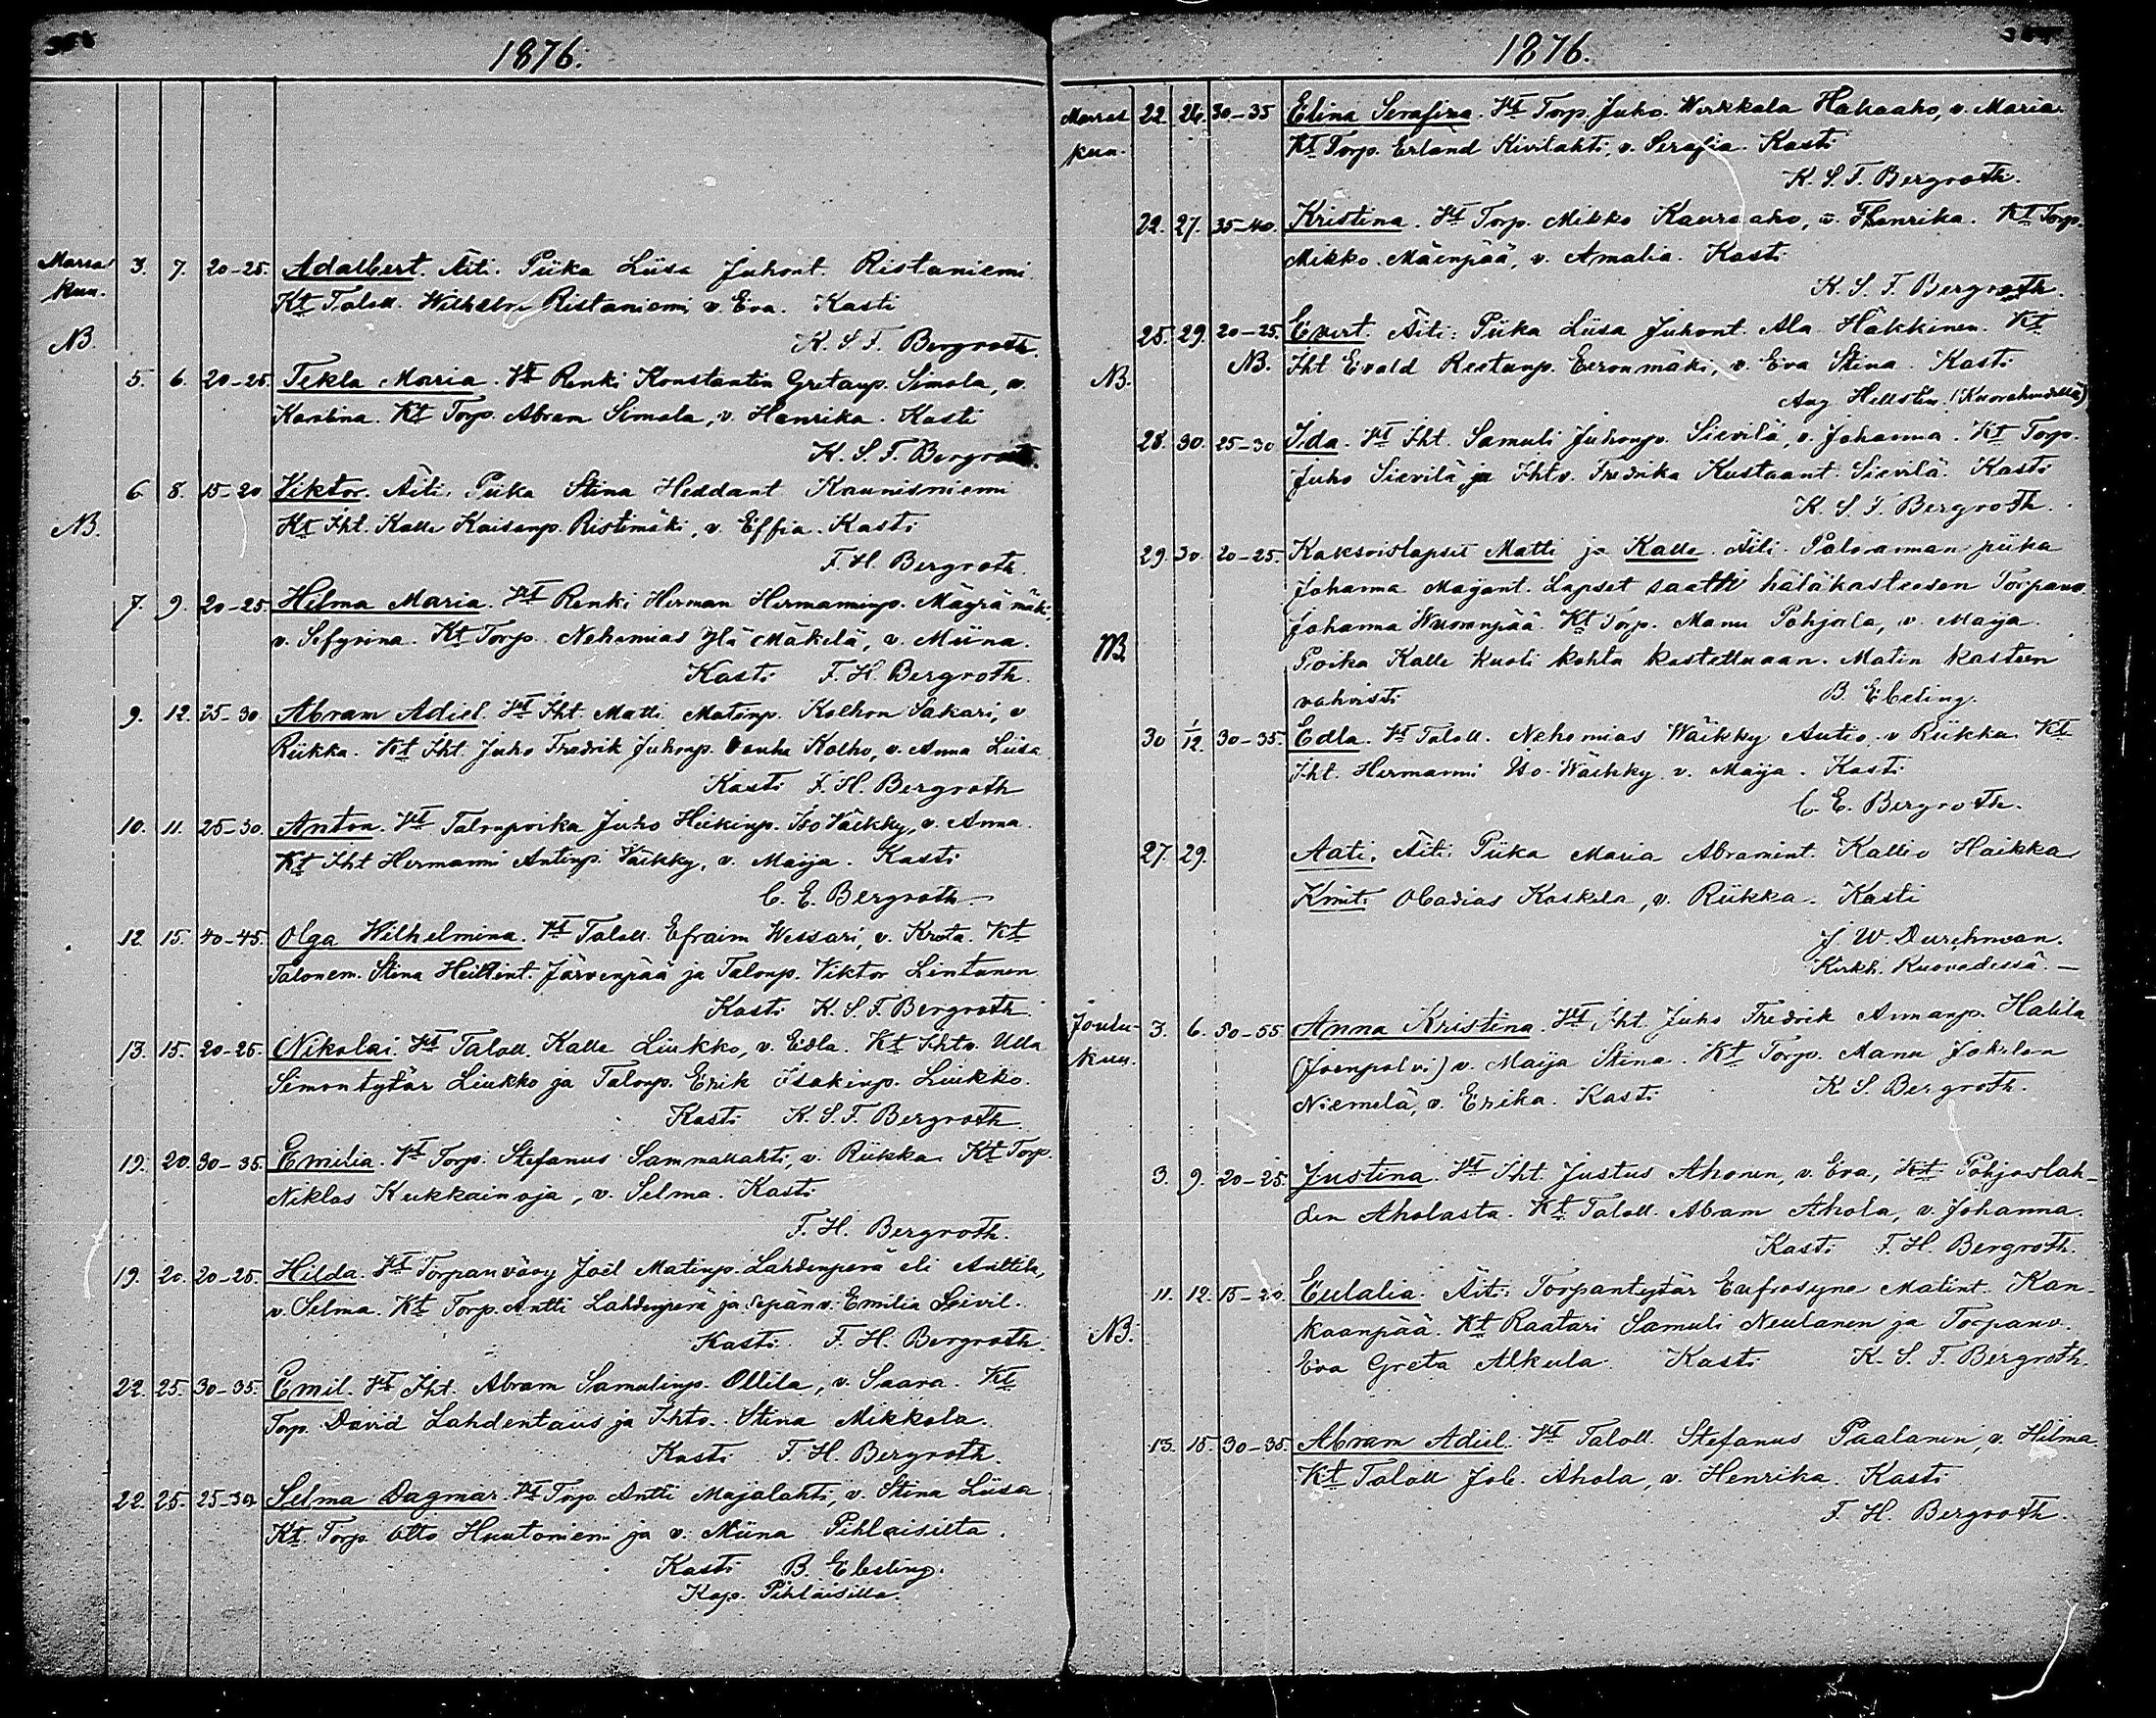 1876.
Marras 3. 7. 20-25. Adalbert. Äiti. Piika Liisa Juhont. Ristaniemi
kuu. Kt Taloll. Wilhelm Ristaniemi v. Eva. Kasti
NB. K. S. F. Bergroth.
5. 6. 20-25. Tekla Maria. Vt Renki Konstantin Gretanp. Simola, v.
Karolina. Kt Torp. Abram Simola, v. Henrika. Kasti
K. S. F. Bergroth
6. 8. 15-20 Viktor. Äiti. Piika Stina Heddant Kaunisniemi
NB. Kt Iht. Kalle Kaisanp. Ristimäki, v. Effia. Kasti
F. H. Bergroth.
7. 9. 20-25 Helma Maria. Vt Renki Herman Hermanninp. Mäyrämäki,
v. Sefyrina. Kt Torp. Nehemias Ylä Mäkelä, v. Miina.
Kasti F. H. Bergroth.
9. 12. 25-30. Abram Adiel. Vt Iht. Matti Matinp. Kolhon Sakari, v
Riikka. Kt Iht. Juho Fredrik Juhonp. Vanha Kolho, v. Anna Liisa
Kasti F. H. Bergroth
10. 11. 25-30. Anton. Vt Talonpoika Juho Heikinp. Iso Väikky, v. Anna.
Kt Iht Hermanni Antinp. Väikky, v. Maija. Kasti
C. E. Bergroth
12 15. 40-45. Olga Wilhelmina. Vt Taloll. Efraim Wessari, v. Kreta. Kt
Talonem. Stina Heikint. Järvenpää ja Talonp. Viktor Lintunen
Kasti K. S. F. Bergroth.
13. 15. 20-25. Nikolai. Vt Taloll. Kalle Liukko, v. Edla. Kt Ihtv. Ulla
Simontytär Liukko ja Talonp. Erik Isakinp. Liukko.
Kasti K. S. F. Bergroth
19. 20. 30-35. Emilia. Vt Torp. Stefanus Sammallahti, v. Riikka Kt Torp.
Niklas Kukkainoja, v. Selma. Kasti
F. H. Bergroth.
19. 20. 20-25. Hilda. Vt Torpanvävy Joel Matinp. Lahdenperä eli Anttila,
v. Selma. Kt Torp. Antti Lahdenperä ja Sepänv. Emilia
Kasti F. H. Bergroth.
22. 25. 30-35. Emil. Vt Iht. Abram Samulinp. Ollila, v. Saara. Kt
Torp. David Lahdentaus ja Ihtv. Stina Mikkola.
Kasti F. H. Bergroth.
22. 25. 25-30 Selma Dagmar. Vt Torp. Antti Majalahti, v. Stina Liisa.
Kt. Torp. Otto Huutoniemi ja v. Miina Pihlaisilta.
Kasti B. Ebeling.
Kap. Pihlaisilla.
1876.
Marras 22. 26. 30-35 Elina Serafina. Vt Torp. Juho Wirkkala Hakoaho, v. Maria.
kuu. Kt Torp. Erland Kivilahti, v. Serafia. Kasti
K. S. F. Bergroth.
22. 27. 35-40. Kristina. Vt Torp. Mikko Kauraaho, v. Henrika. Kt Torp.
Mikko Mäenpää, v. Amalia. Kasti
K. S. F. Bergroth.
25. 29. 20-25. Evert. Äiti: Piika Liisa Juhont. Ala Häkkinen. Kt
NB. NB. Iht Evald Reetanp. Eeronmäki, v. Eva Stina. Kasti
Aug Hellsten
28. 30. 25-30 Ida. Vt Iht. Samuli Juhonp. Sievilä, v. Johanna. Kt Torp.
Juho Sievilä, ja Ihtv. Fredrika Kustaant. Sievilä. Kasti
K. S. F. Bergroth.
29. 30. 20-25. Kaksoislapset Matti ja Kalle. Äiti. Palovaman piika
Johanna Maijant. Lapset saatti hätäkasteesen Torpanv.
NB. Johanna Wuorenpää. Kt Torp. Manu Pohjola, v. Maija.
Poika Kalle kuoli kohta kastettuaan. Matin kasteen
vahvisti B. Ebeling.
30 1/12 30-35. Edla. Vt Taloll. Nehemias Wäikky Autio v Riikka. Kt
Iht. Hermanni Iso-Wäikky v. Maija. Kasti
C. E. Bergroth.
27. 29. Aati. Äiti: Piika Maria Abramint. Kallio Haikka
Kmit. Obadias Koskela, v. Riikka. Kasti
J. W. Durchman.
Kirkh. Ruovedessä.
Joulu- 3. 6. 50-55. Anna Kristina. Vt Iht. Juho Fredrik Annanp. Halila
kuu. (Joenpolvi) v. Maija Stina. Kt Torp. Manu Jokelan
Niemelä, v. Erika. Kasti K S. Bergroth.
3. 9. 20-25. Justina. Vt Iht. Justus Ahonen, v. Eva, Kt Pohjoslah-
den Aholasta. Kt Taloll. Abram Ahola, v. Johanna.
Kasti F. H. Bergroth.
11. 12. 15-20. Eulalia. Äiti: Torpantytär Eufrosyne Matint. Kan-
NB. kaanpää. Kt Raatari Samuli Neulanen ja Torpanv.
Eva Greta Alkula. Kasti K. S. F. Bergroth.
13. 15. 30-35. Abram Adiel. Vt Taloll. Stefanus Paalanen, v. Hilma.
Kt Taloll Job. Ahola, v. Henrika. Kasti
F. H. Bergroth.